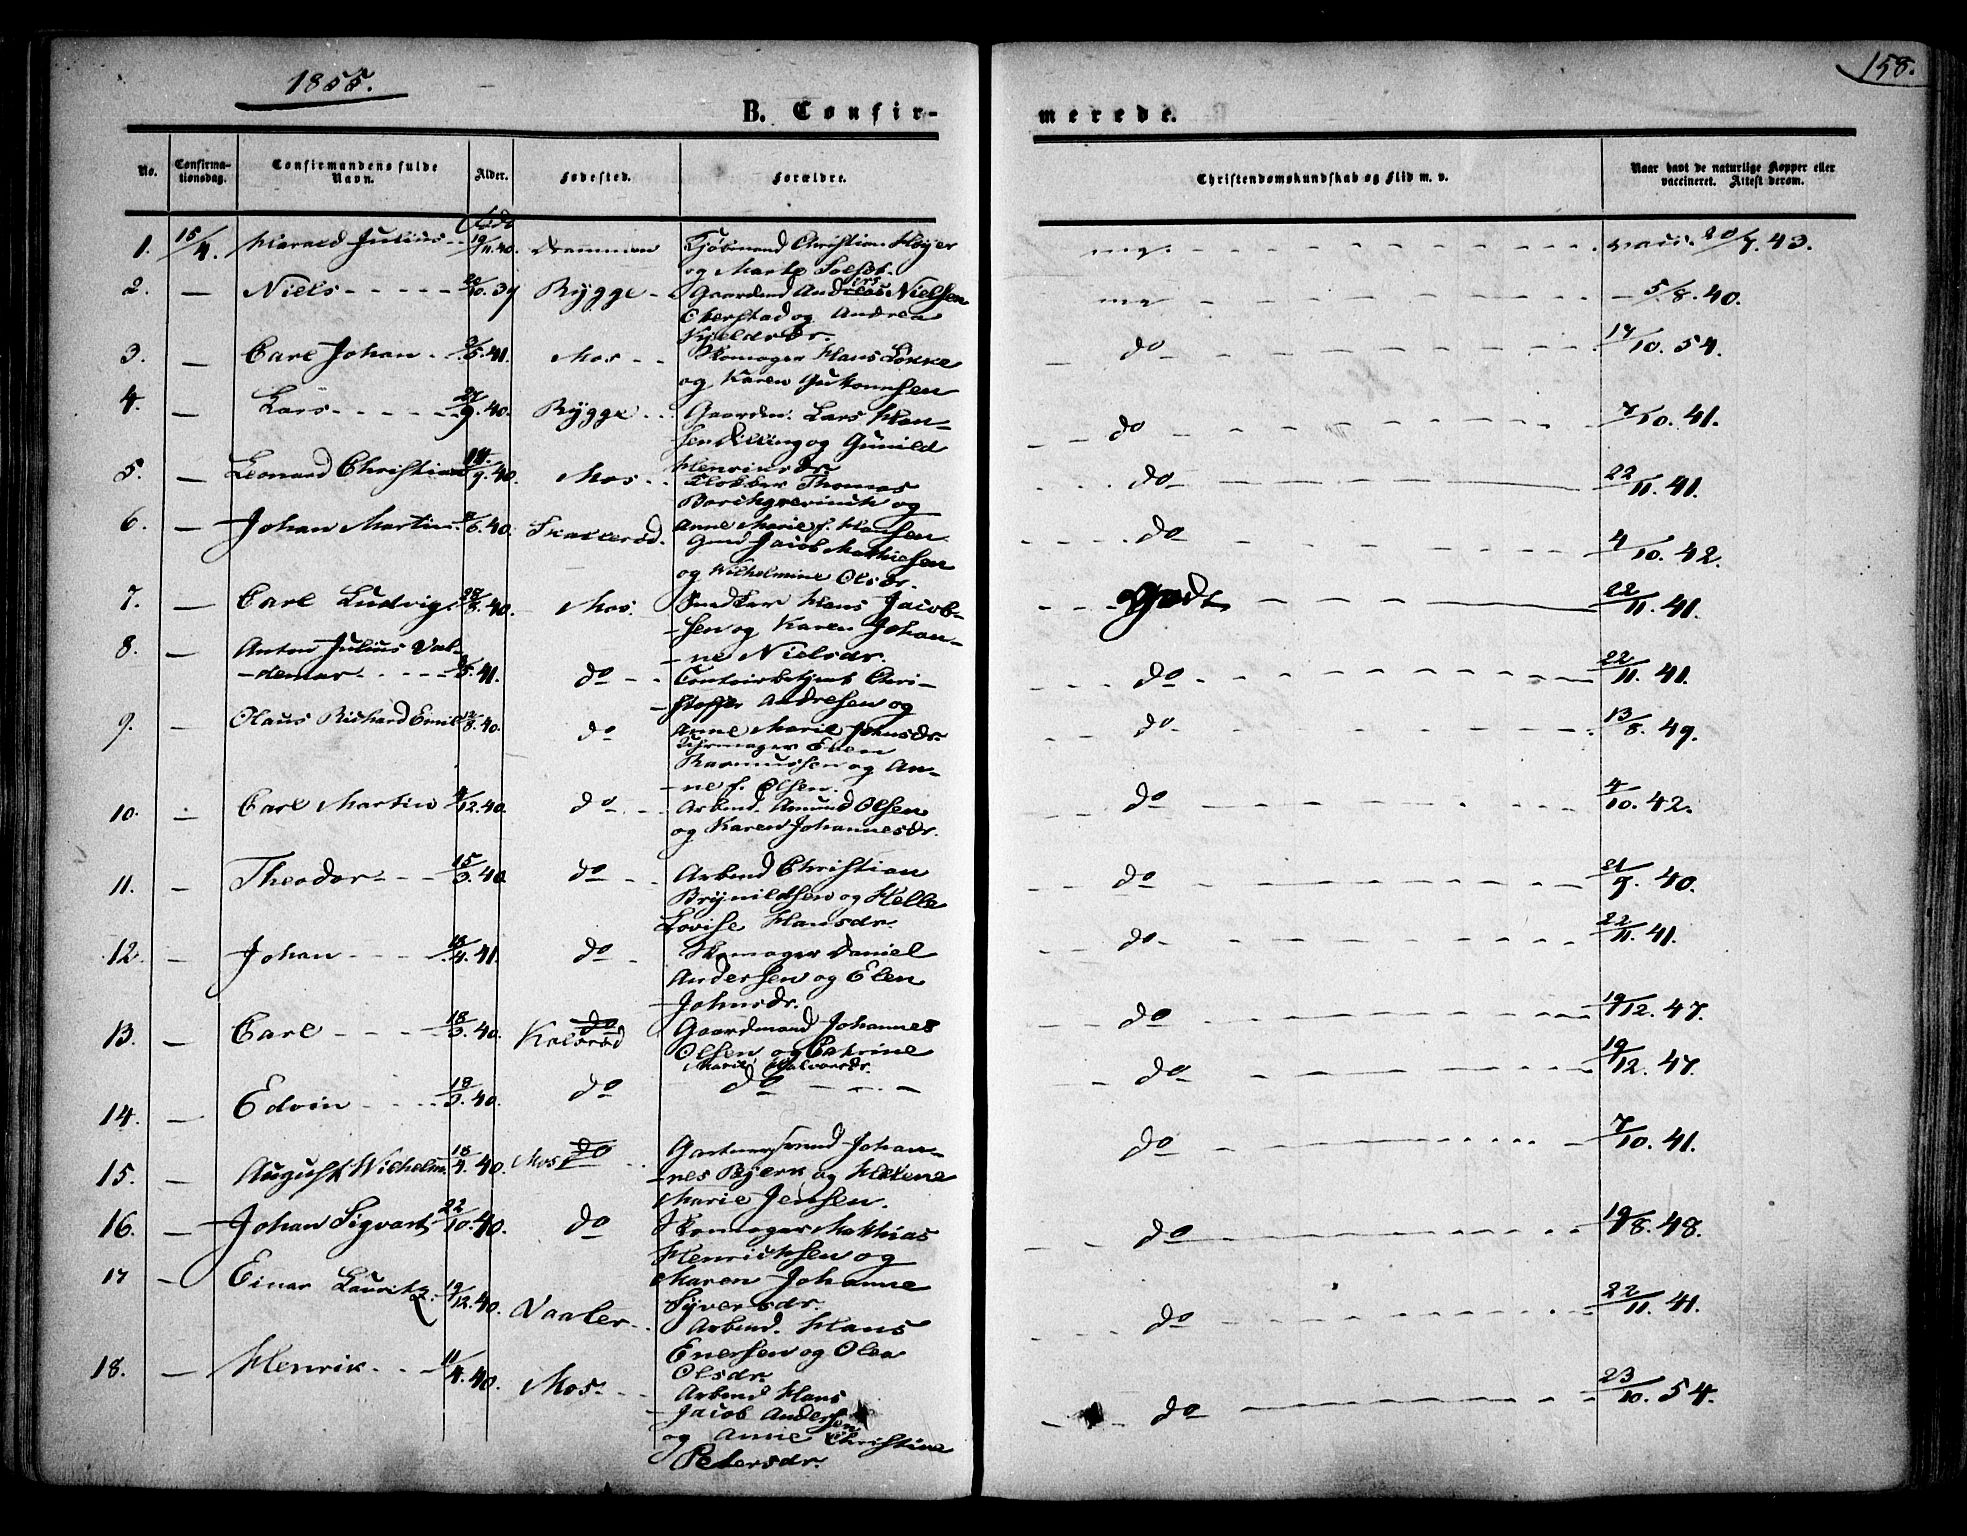 1855.
158.
B. Confirmerede.
No.
Confirmationsdag.
Confirmandens fulde Navn.
Alder.
Fødested.
Forældre.
Christendomskundskab og Flid m. v.
Naar havt de naturlige Kopper eller vaccineret. Attest derom.
1. 15/4. Harald Julius 19/11.40. Drammen Kjøbmand Christian Høyer
og Marte Solset. mg. vacc. 20/7.43.
2. — Niels 20/10.39 Rygge Gaardmd Anders Nielsen
Ekerstad og Andrea
Kjeldsdr. mg 5/8.40.
3. — Carl Johan /5.41. Mos Skomager Hans Løkke
og Karen Guttormsen do 17/10.54.
4. — Lars 27/9.40. Rygge Gaardm. Lars Han-
sen Dilling og Gunild
Henriksdr. do 7/10.41.
5. — Leonard Christian 18/9.40. Mos Klokker Thomas
Borchgrevinck og
Anne Marie f. Hansen do 22/11.41.
6. — Johan Martin /6.40. Skallerød. Gmd Jacob Mathiesen
og Wilhelmine Olsdr. do 4/10.42.
7. — Carl Ludvig 28/8.40. Mos. Snedker Hans Jacob-
sen og Karen Johan-
ne Nielsdr. Godt 22/11.41.
8. — Anton Julius Val-
demar /5.41. do Contoirbetjent Chri-
stoffer Andresen og
Anne Marie Johnsdr. do 22/11.41.
9. — Olaus Richard Emil /8.40. do Uhrmager Elen
Rasmussen og An-
ne f. Olsen. do 13/8.49.
10. — Carl Martin 4/12.40. do Arbmd. Amund Olsen
og Karen Johannesdr. do 4/10.42.
11. — Theodor 15/3.40. do Arbmd Christian
Brynildsen og Helle
Lovise Hansdr. do 21/9.40.
12. — Johan 18/4.41. do Skomager Daniel
Andersen og Elen
Johnsdr. do 22/11.41.
13. — Carl 18/3.40. do Kolsrød Gaardmand Johannes
Olsen og Catrine
Marie Halvorsdr. do 19/12.47.
14. — Edvin 18/3.40. do do do 19/12.47.
15. — August Wilhelm 18/4.40. Mos do Gartnersvend Johan-
nes Bjerk og Helene
Marie Jensen. do 7/10.41.
16. — Johan Sigvart 22/10.40. do Skomager Mathias
Henrichsen og
Maren Johanne
Syversdr. do 19/8.48.
17 — Einar Lauritz 19/12.40. Vaaler Arbmd. Hans
Enersen og Olea
Olsdr. do 22/11.41.
18. — Henrik 11/4.40. Mos Arbmd Hans
Jacob Andersen
og Anne Christine
Petersdr. do 23/10.54.